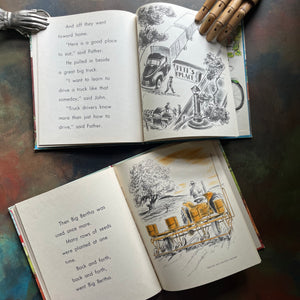 And off they went
toward home.
"Here is a good place
to eat," said Father.
He pulled in beside
a great big truck.
"I want to learn to
drive a truck like that
someday," said John.
"Truck drivers know
more than just how to
drive," said Father.
PETE'S
PLACE
Then Big Bertha was
used once more.
Many rows of seeds
were planted at one
time.
Back and forth,
back and forth,
went Big Bertha.